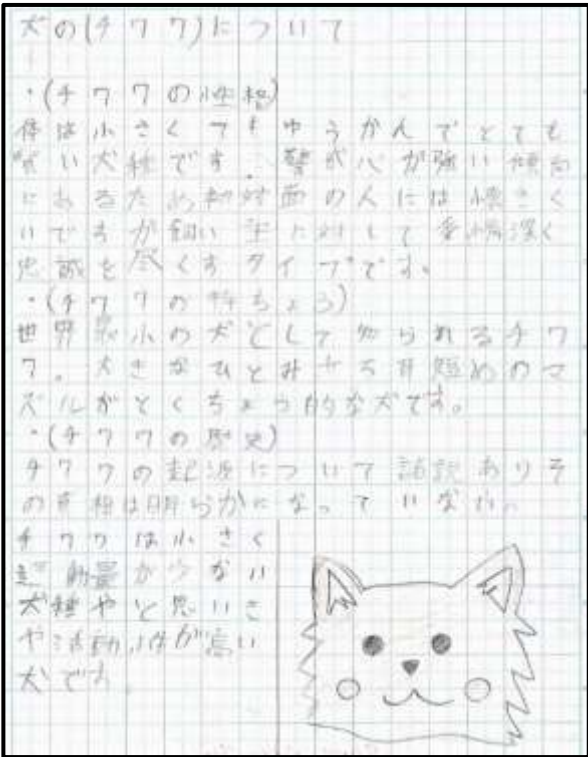 犬の(チワワ)について
・(チワワの性格)
体は小さくてもゆうかんでとても
賢い犬種です。警が心が強い傾向
にあるため初対面の人には懐きく
いですが飼い主に対して愛情深く
忠誠を尽くすタイプです。
・(チワワの特ちょう)
世界最小の犬として知られるチワ
ワ。大きなひとみ 短めのマ
ズルがとくちょう的な犬です。
・(チワワの歴史)
チワワの起源について諸説ありそ
の真相は明らかになっていない。
チワワは小さく
運動量が少ない
犬種やと思いき
や活動性が高い
犬です